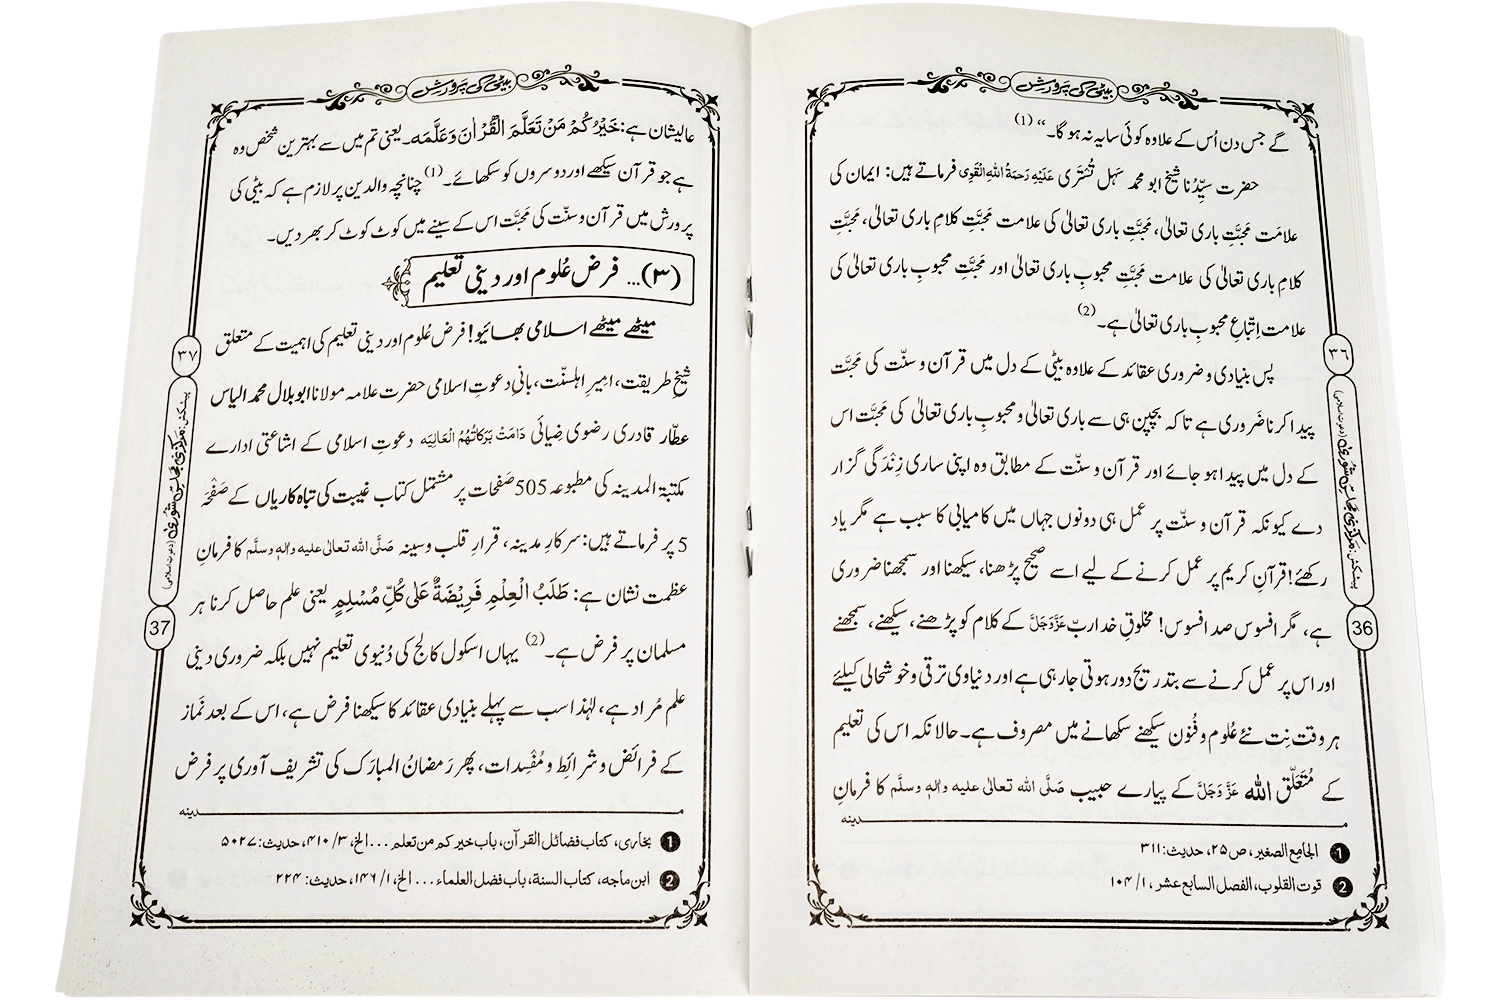 بیٹی کی پرورش
گے جس دن اُس کے علاوہ کوئی سایہ نہ ہو گا۔“ (1)
حضرت سیِّدُنا شیخ ابو محمد سَہل تُستَری عَلَیْہِ رَحمَۃُ اللہِ الْقَوِی فرماتے ہیں: ایمان کی
علامَت مَحبَّتِ باری تعالیٰ، مَحبَّتِ باری تعالیٰ کی علامت مَحبَّتِ کلامِ باری تعالیٰ، مَحبَّتِ
کلامِ باری تعالیٰ کی علامت مَحبَّتِ محبوبِ باری تعالیٰ اور مَحبَّتِ محبوبِ باری تعالیٰ کی
علامت اِتِّباعِ محبوبِ باری تعالیٰ ہے۔ (2)
پس بنیادی و ضروری عقائد کے علاوہ بیٹی کے دل میں قرآن و سنّت کی مَحبَّت
پیدا کرنا ضَروری ہے تاکہ بچپن ہی سے باری تعالیٰ و محبوبِ باری تعالیٰ کی مَحبَّت اس
کے دل میں پیدا ہو جائے اور قرآن و سنّت کے مطابق وہ اپنی ساری زِنْدَگی گزار
دے کیونکہ قرآن و سنّت پر عمل ہی دونوں جہاں میں کامیابی کا سبب ہے مگر یاد
رکھئے! قرآنِ کریم پر عمل کرنے کے لیے اسے صحیح پڑھنا، سیکھنا اور سمجھنا ضروری
ہے، مگر افسوس صد افسوس! مخلوقِ خدا ربّ عَزَّوَجَلَّ کے کلام کو پڑھنے، سیکھنے، سمجھنے
اور اس پر عمل کرنے سے بتدریج دور ہوتی جارہی ہے اور دنیاوی ترقی و خوشحالی کیلئے
ہر وقت نِت نئے عُلوم و فُنُون سیکھنے سکھانے میں مصروف ہے۔ حالانکہ اس کی تعلیم
کے مُتَعَلِّق اللہ عَزَّوَجَلَّ کے پیارے حبیب صَلَّی اللہ تعالیٰ علیہ والہٖ وسلَّم کا فرمانِ
مدینہ
1 الجامع الصغیر، ص ۲۵، حدیث: ۳۱۱
2 قوت القلوب، الفصل السابع عشر، ۱/ ۱۰۴
۳۶
پیشکش: مرکزی مجلسِ شوریٰ (دعوتِ اسلامی)
36
بیٹی کی پرورش
عالیشان ہے: خَیْرُکُمْ مَنْ تَعَلَّمَ الْقُرْاٰنَ وَعَلَّمَہ۔ یعنی تم میں سے بہترین شخص وہ
ہے جو قرآن سیکھے اور دوسروں کو سکھائے۔ (1) چنانچہ والدین پر لازم ہے کہ بیٹی کی
پرورش میں قرآن و سنّت کی مَحبَّت اس کے سینے میں کوٹ کوٹ کر بھر دیں۔
(۳)... فرض عُلوم اور دینی تعلیم
میٹھے میٹھے اسلامی بھائیو! فرض عُلوم اور دینی تعلیم کی اہمیت کے متعلق
شیخِ طریقت، امیرِ اہلسنّت، بانیِ دعوتِ اسلامی حضرت علامہ مولانا ابو بلال محمد الیاس
عطّار قادری رضوی ضِیائی دَامَتْ بَرَکَاتُہُمُ الْعَالِیَہ دعوتِ اسلامی کے اشاعتی ادارے
مکتبۃ المدینہ کی مطبوعہ 505 صَفحات پر مشتمل کتاب غیبت کی تباہ کاریاں کے صَفْحَہ
5 پر فرماتے ہیں: سرکارِ مدینہ، قرارِ قلب و سینہ صَلَّی اللہ تعالیٰ علیہ والہٖ وسلَّم کا فرمانِ
عظمت نشان ہے: طَلَبُ الْعِلْمِ فَرِیْضَۃٌ عَلٰی کُلِّ مُسْلِمٍ یعنی علم حاصل کرنا ہر
مسلمان پر فرض ہے۔ (2) یہاں اسکول کالج کی دُنیوی تعلیم نہیں بلکہ ضروری دینی
علم مُراد ہے، لہٰذا سب سے پہلے بنیادی عقائد کا سیکھنا فرض ہے، اس کے بعد نَماز
کے فرائض و شرائِط و مُفْسِدات، پھر رَمضانُ المبارَک کی تشریف آوری پر فرض
مدینہ
1 بخاری، کتاب فضائل القرآن، باب خیرکم من تعلم ... الخ، ۳/ ۴۱۰، حدیث: ۵۰۲۷
2 ابن ماجہ، کتاب السنۃ، باب فضل العلماء ... الخ، ۱/ ۱۴۶، حدیث: ۲۲۴
۳۷
پیشکش: مرکزی مجلسِ شوریٰ (دعوتِ اسلامی)
37